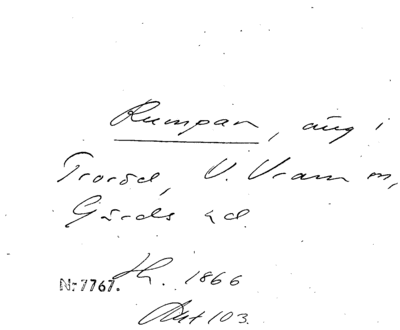 Rumpan, äng i
Troröd, V. Vram sn,
Gärds hd.
Nr 7767. Hl. 1866
Akt 103.